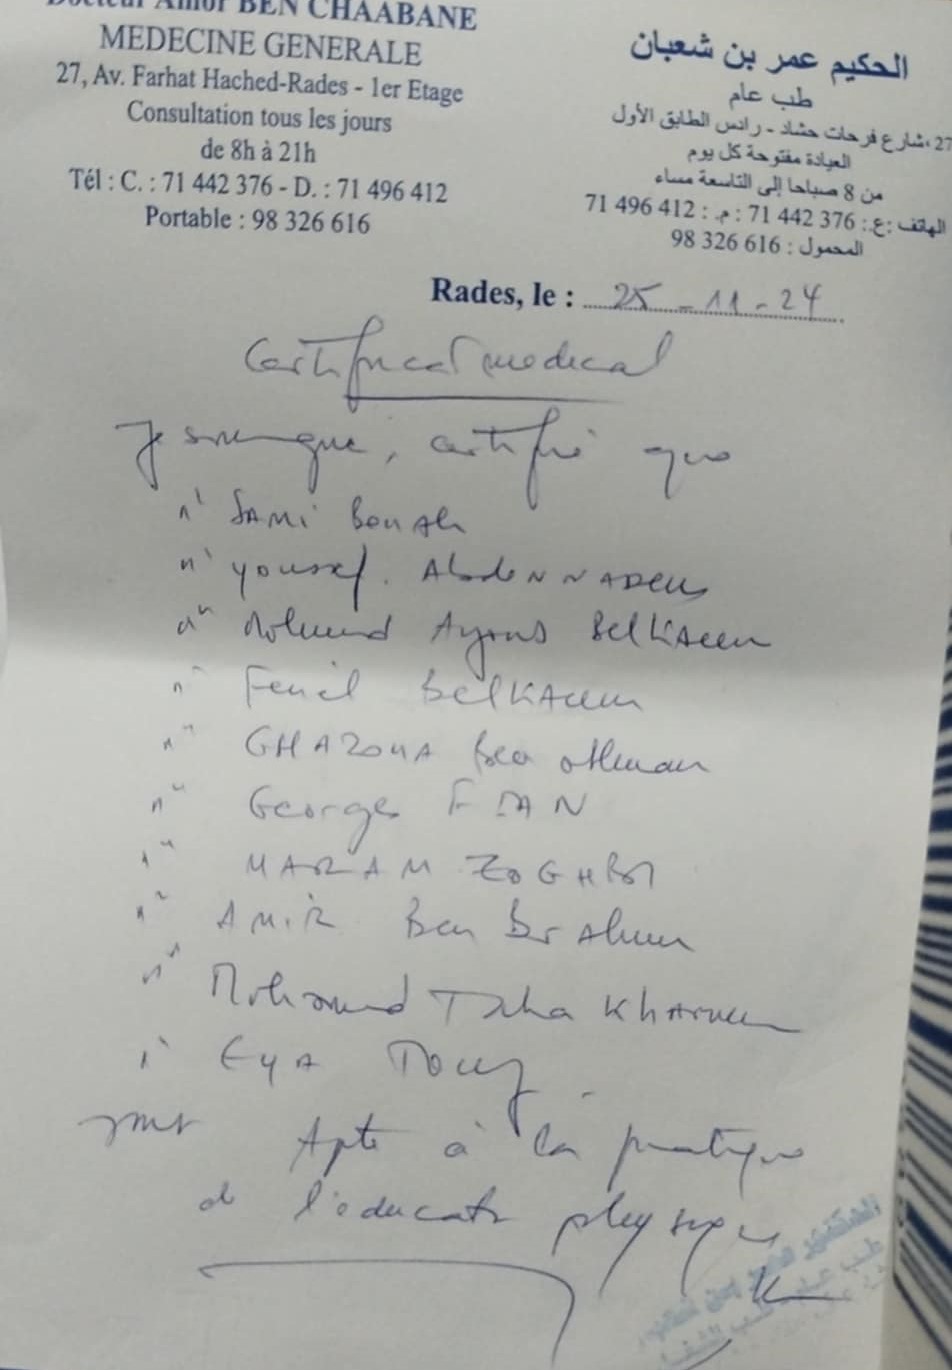 Docteur Amor BEN CHAABANE
MEDECINE GENERALE
27, Av. Farhat Hached-Rades - 1er Etage
Consultation tous les jours
de 8h à 21h
Tél : C. : 71 442 376 - D. : 71 496 412
Portable : 98 326 616
الحكيم عمر بن شعبان
طب عام
27، شارع فرحات حشاد - رادس الطابق الأول
العيادة مفتوحة كل يوم
من 8 صباحا إلى التاسعة مساء
الهاتف :ع.: 376 442 71 : م. : 412 496 71
المحمول : 616 326 98
Rades, le : 25-11-24
Certificat medical
Je soussigné, certifie que
Sami Ben Ali
Youssef. Abdennadher
Mohamed Aymus Belkacem
Ferid Belkacem
GHAZOUA Ben Othman
Georges
MARAM ZOGHBI
AMIR Ben Brahim
Mohamed Taha Khamem
EYA
sont Apte à la pratique
de l'éducat physique